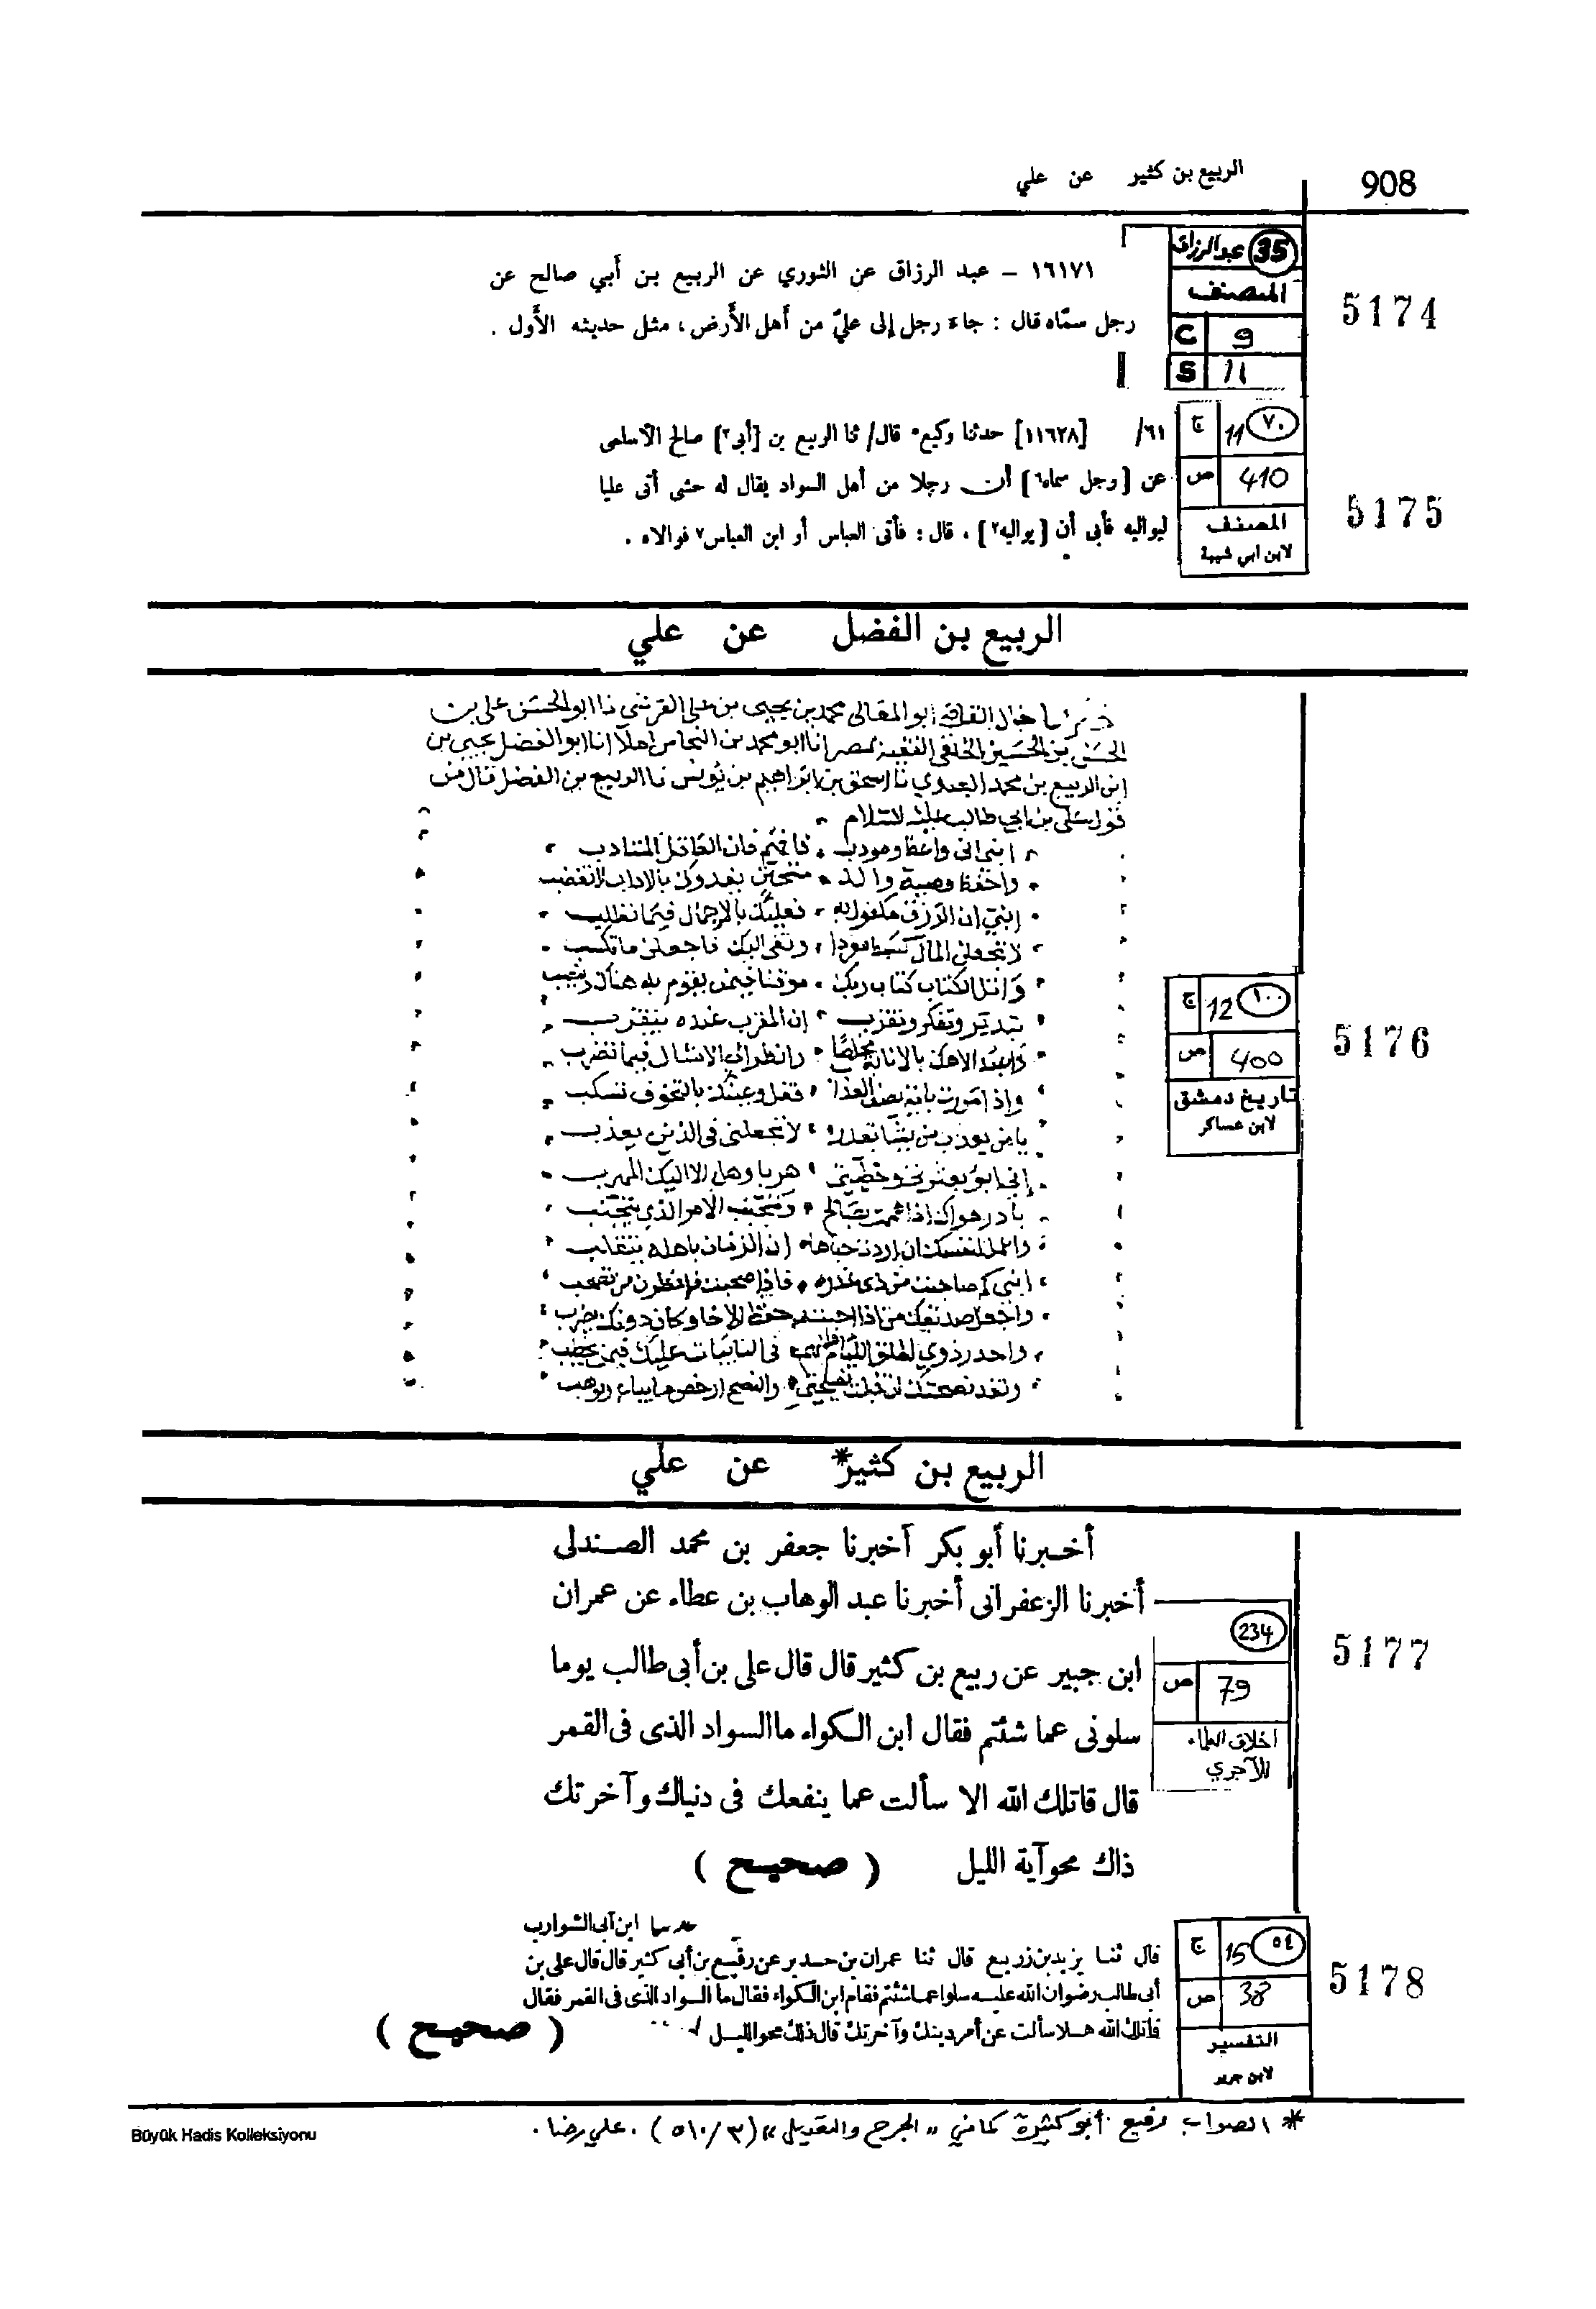 908
الربيع بن كثير عن علي
5174
عبدالرزاق 35
المصنف
C 9
S 11
١٦١٧١ – عبد الرزاق عن الثوري عن الربيع بن أبي صالح عن
رجل سمّاه قال : جاء رجل إلى عليّ من أهل الأرض ، مثل حديثه الأول .
5175
٧٠ 11 ج
410 ص
المصنف
لابن ابي شيبة
٦١/ [١١٦٢٨] حدثنا وكيع قال/ ثنا الربيع بن [أبى٢] صالح الأسلمى
عن [رجل سماه٦] أن رجلا من أهل السواد يقال له حشى أتى عليا
ليواليه فأبى أن [يواليه٢] ، قال : فأتى العباس أو ابن العباس٧ فوالاه .
الربيع بن الفضل عن علي
5176
١٠٠ 12 ج
400 ص
تاريخ دمشق
لابن عساكر
ابو المعالى محمد بن يحيى بن على القرشي نا ابو الحسن على بن
الحسن بن الحسين الخلعى الفقيه بمصر انا ابو محمد بن النحاس املا انا ابو الفضل يحيى بن
ابن الربيع بن محمد العبدي نا اسحق بن ابراهيم بن يونس نا الربيع بن الفضل قال من
قول على بن ابى طالب عليه السلام
ابني انى واعظ ومودب فافهم فان العاقل المتادب
واحفظ وصية والد متحنن يغدوك بالاداب لا تغضب
ابني ان الرزق مكفول به فعليك بالاجمال فيما تطلب
لا تجعلن المال كسبك مفردا وتقى الهك فاجعلن ما تكسب
واتل الكتاب كتاب ربك موقنا فيمن يقوم به هناك وينصب
بتدبر وتفكر وتقرب ان المقرب عنده يتقرب
واعبد الاهك بالانابة مخلصا وانظر الى الامثال فيما تضرب
واذا مررت باية تصف العذاب فقف وعينك بالتخوف تسكب
يا من يعذب من يشا بعدله لا تجعلنى فى الذين يعذب
إنى ابوء بعثرتى وخطيئتى هربا وهل الا اليك المهرب
بادر هواك اذا هممت بصالح وتجنب الامر الذي يتجنب
واعمل لنفسك ان اردت حباها ان الزمان باهله يتقلب
ابني كم صاحبت من ذى غدره فاذا صحبت فانظرن من تصحب
واجعل صديقك من اذا احببته حفظ الاخا وكان دونك يضرب
واحذر ذوي الملق اللئام فانهم فى النايبات عليك فيمن يحطب
ولقد نصحتك ان قبلت نصيحتي والنصح ارخص ما يباع ويوهب
الربيع بن كثير* عن علي
5177
234
79 ص
اخلاق العلماء
للآجري
أخبرنا أبو بكر أخبرنا جعفر بن محمد الصندلى
أخبرنا الزعفرانى أخبرنا عبد الوهاب بن عطاء عن عمران
ابن جبير عن ربيع بن كثير قال قال على بن أبى طالب يوما
سلونى عما شئتم فقال ابن الكواء ما السواد الذى فى القمر
قال قاتلك الله الا سألت عما ينفعك فى دنياك وآخرتك
ذاك محو آية الليل ( صحيح )
5178
٥٤ 15 ج
38 ص
التفسير
لابن جرير
حدثنا ابن أبى الشوارب
قال ثنا يزيد بن زريع قال ثنا عمران بن حدير عن رفيع بن أبى كثير قال قال على بن
أبى طالب رضوان الله عليه سلوا عما شئتم فقام ابن الكواء فقال ما السواد الذى فى القمر فقال
قاتلك الله هلا سألت عن أمر دينك وآخرتك قال ذلك محو الليل ( صحيح )
* الصواب رفيع أبو كثيرة كما في «الجرح والتعديل» (٣/ ٥١٠) . علي رضا .
Büyük Hadis Kolleksiyonu